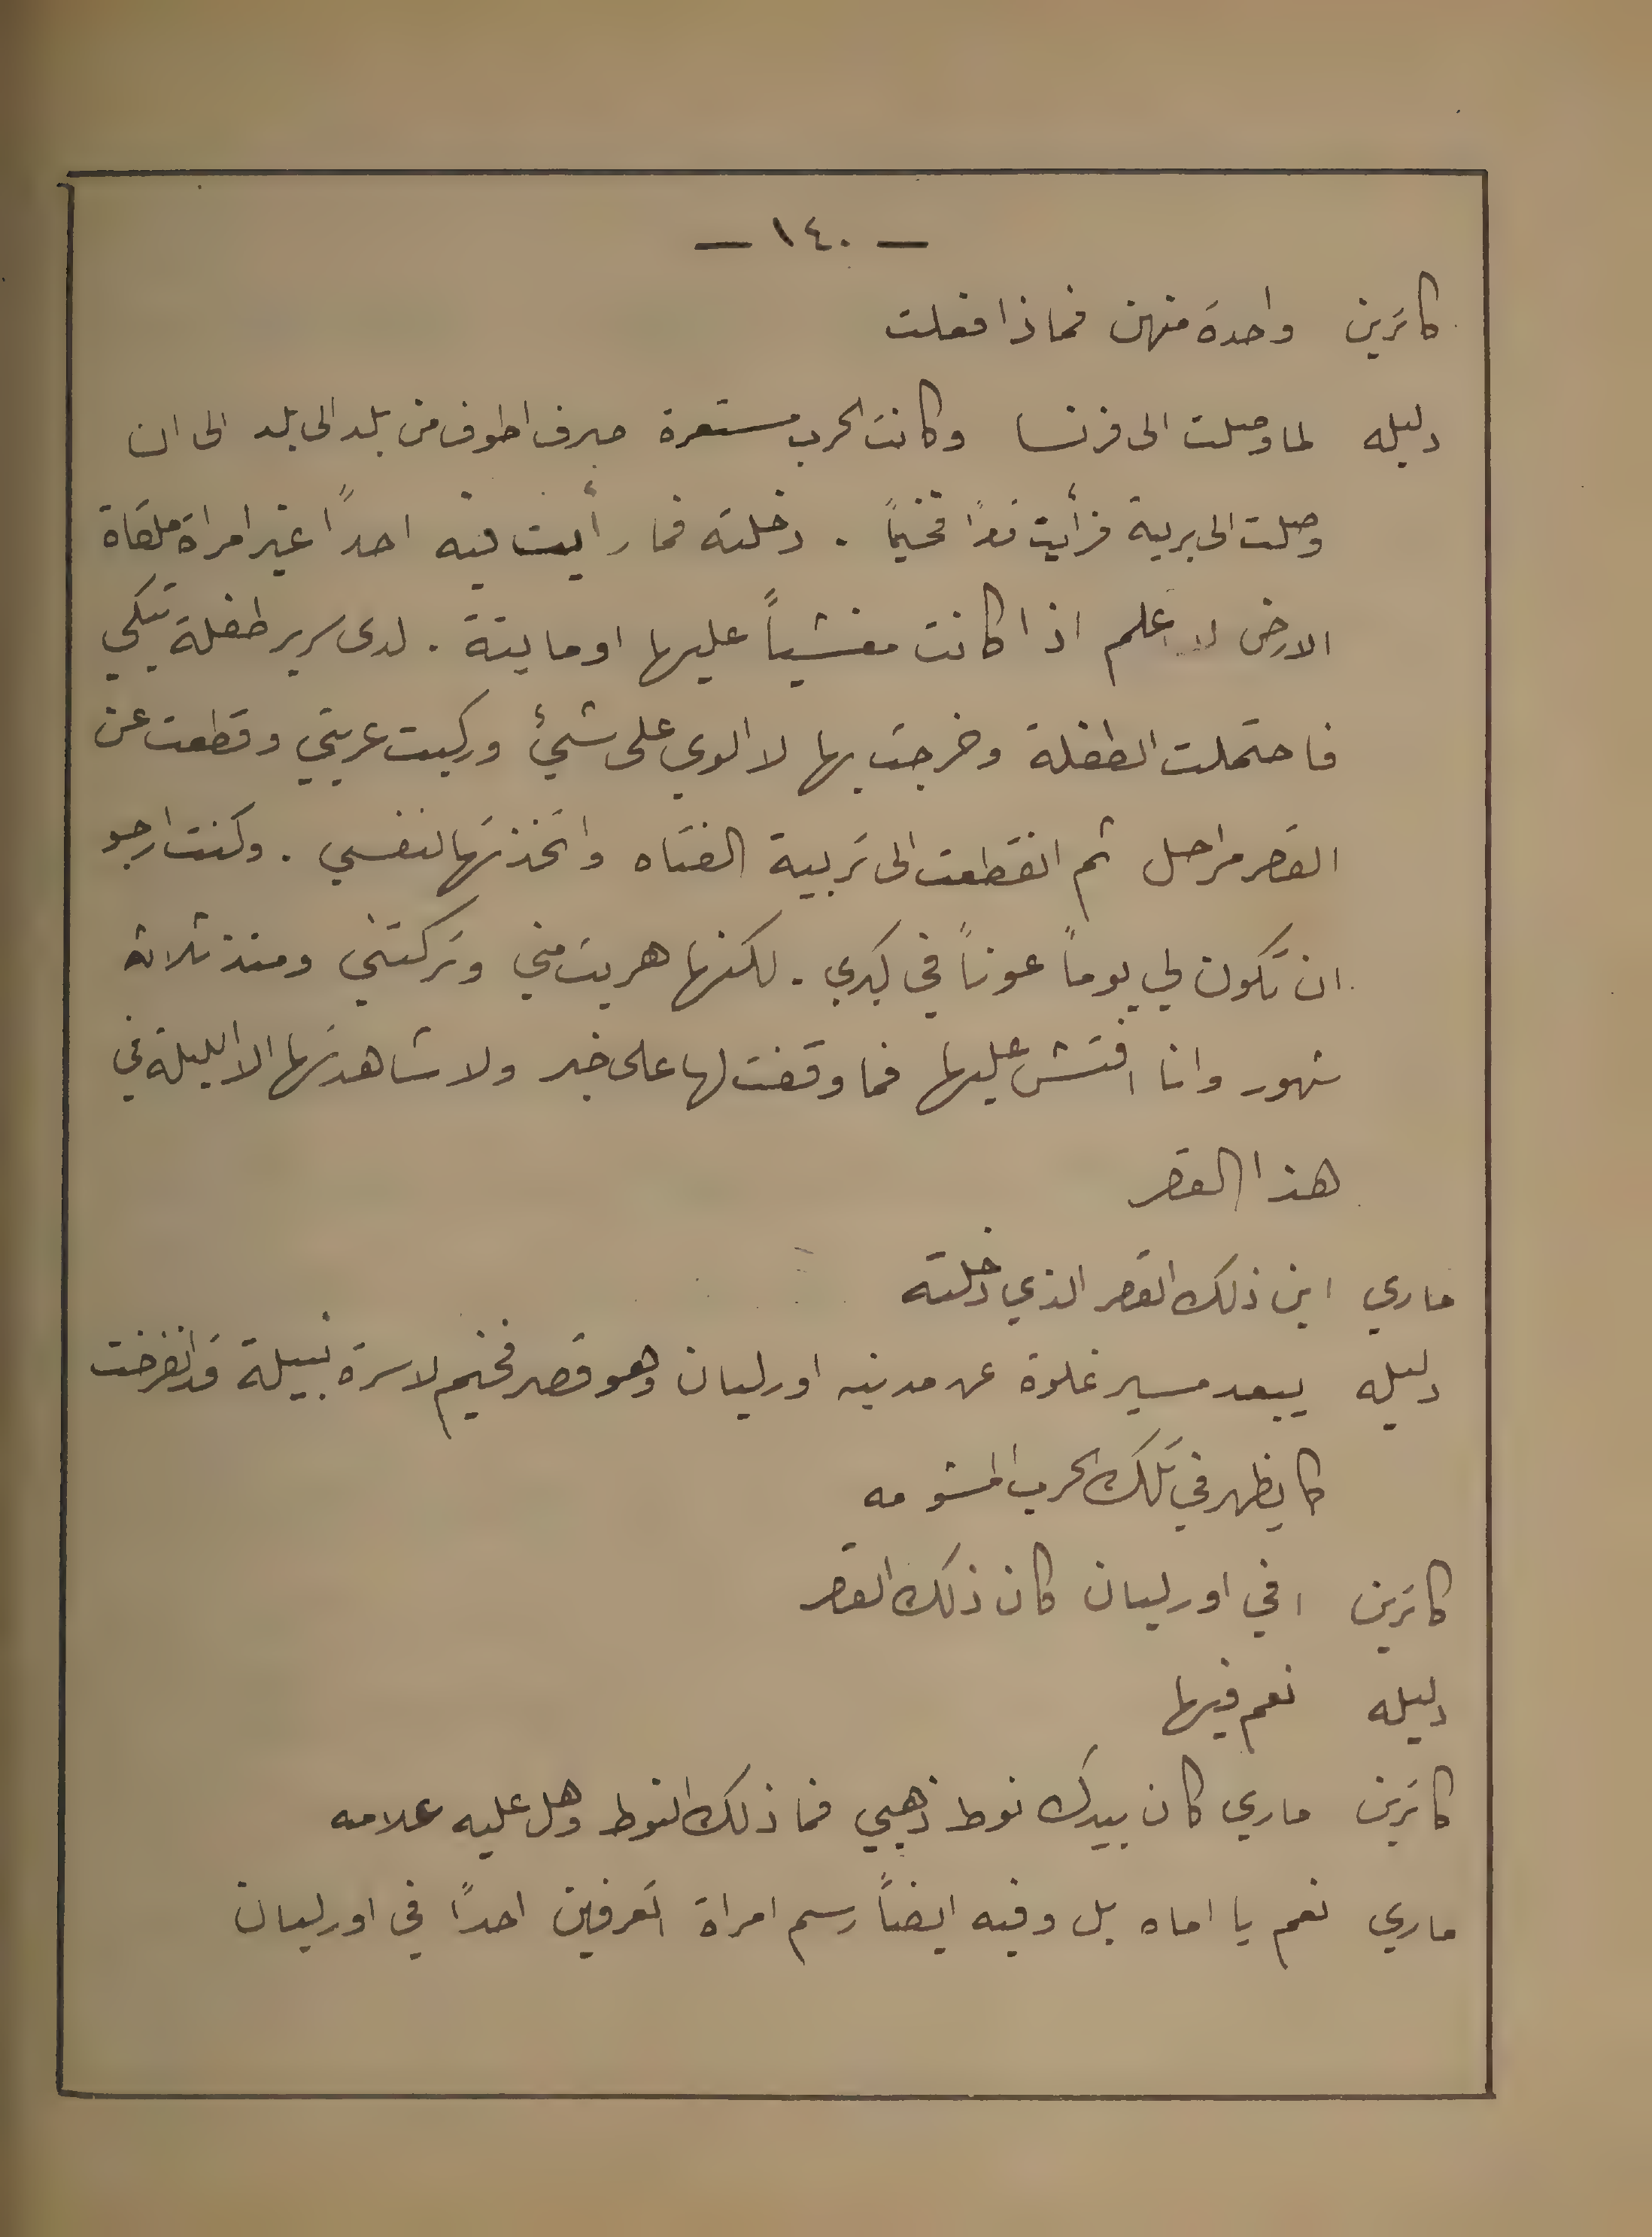 — ١٤٠ —
كاترين واحدة منهن فماذا فعلت
دليله لما وصلت الى فرنسا وكانت الحرب مستعرة صرف اطوف من بلد الى بلد الى ان
وصلت الى برية فرأيت قصرًا فخيمًا . دخلته فما رأيت فيه احدًا غير امراة ملقاة
الارض لا اعلم اذا كانت مغشياً عليها او مايتة . لدى سرير طفلة تبكي
فاحتملت الطفلة وخرجت بها لا الوي على شيئ وركبت عربتي وقطعت عن
القصر مراحل ثم انقطعت الى تربية الفتاه واتخذتها لنفسي . وكنت ارجو
ان تكون لي يوماً عوناً في كبري . لكنها هربت مني وتركتني ومنذ ثلاثة
شهور وانا افتش عليها فما وقفت لها على خبر ولا شاهدتها الا الليلة في
هذا القصر
ماري اين ذلك القصر الذي دخلته
دليله يبعد مسير غلوة عن مدينه اورليان وهو قصر فخيم لاسرة نبيلة قد انقرضت
كما يظهر في تلك الحرب المشومه
كاترين افي اورليان كان ذلك القصر
دليله نعم فيها
كاترين ماري كان بيدك نوط ذهبي فما ذلك النوط وهل عليه علامه
ماري نعم يا اماه بل وفيه ايضاً رسم امراة اتعرفين احدًا في اورليان